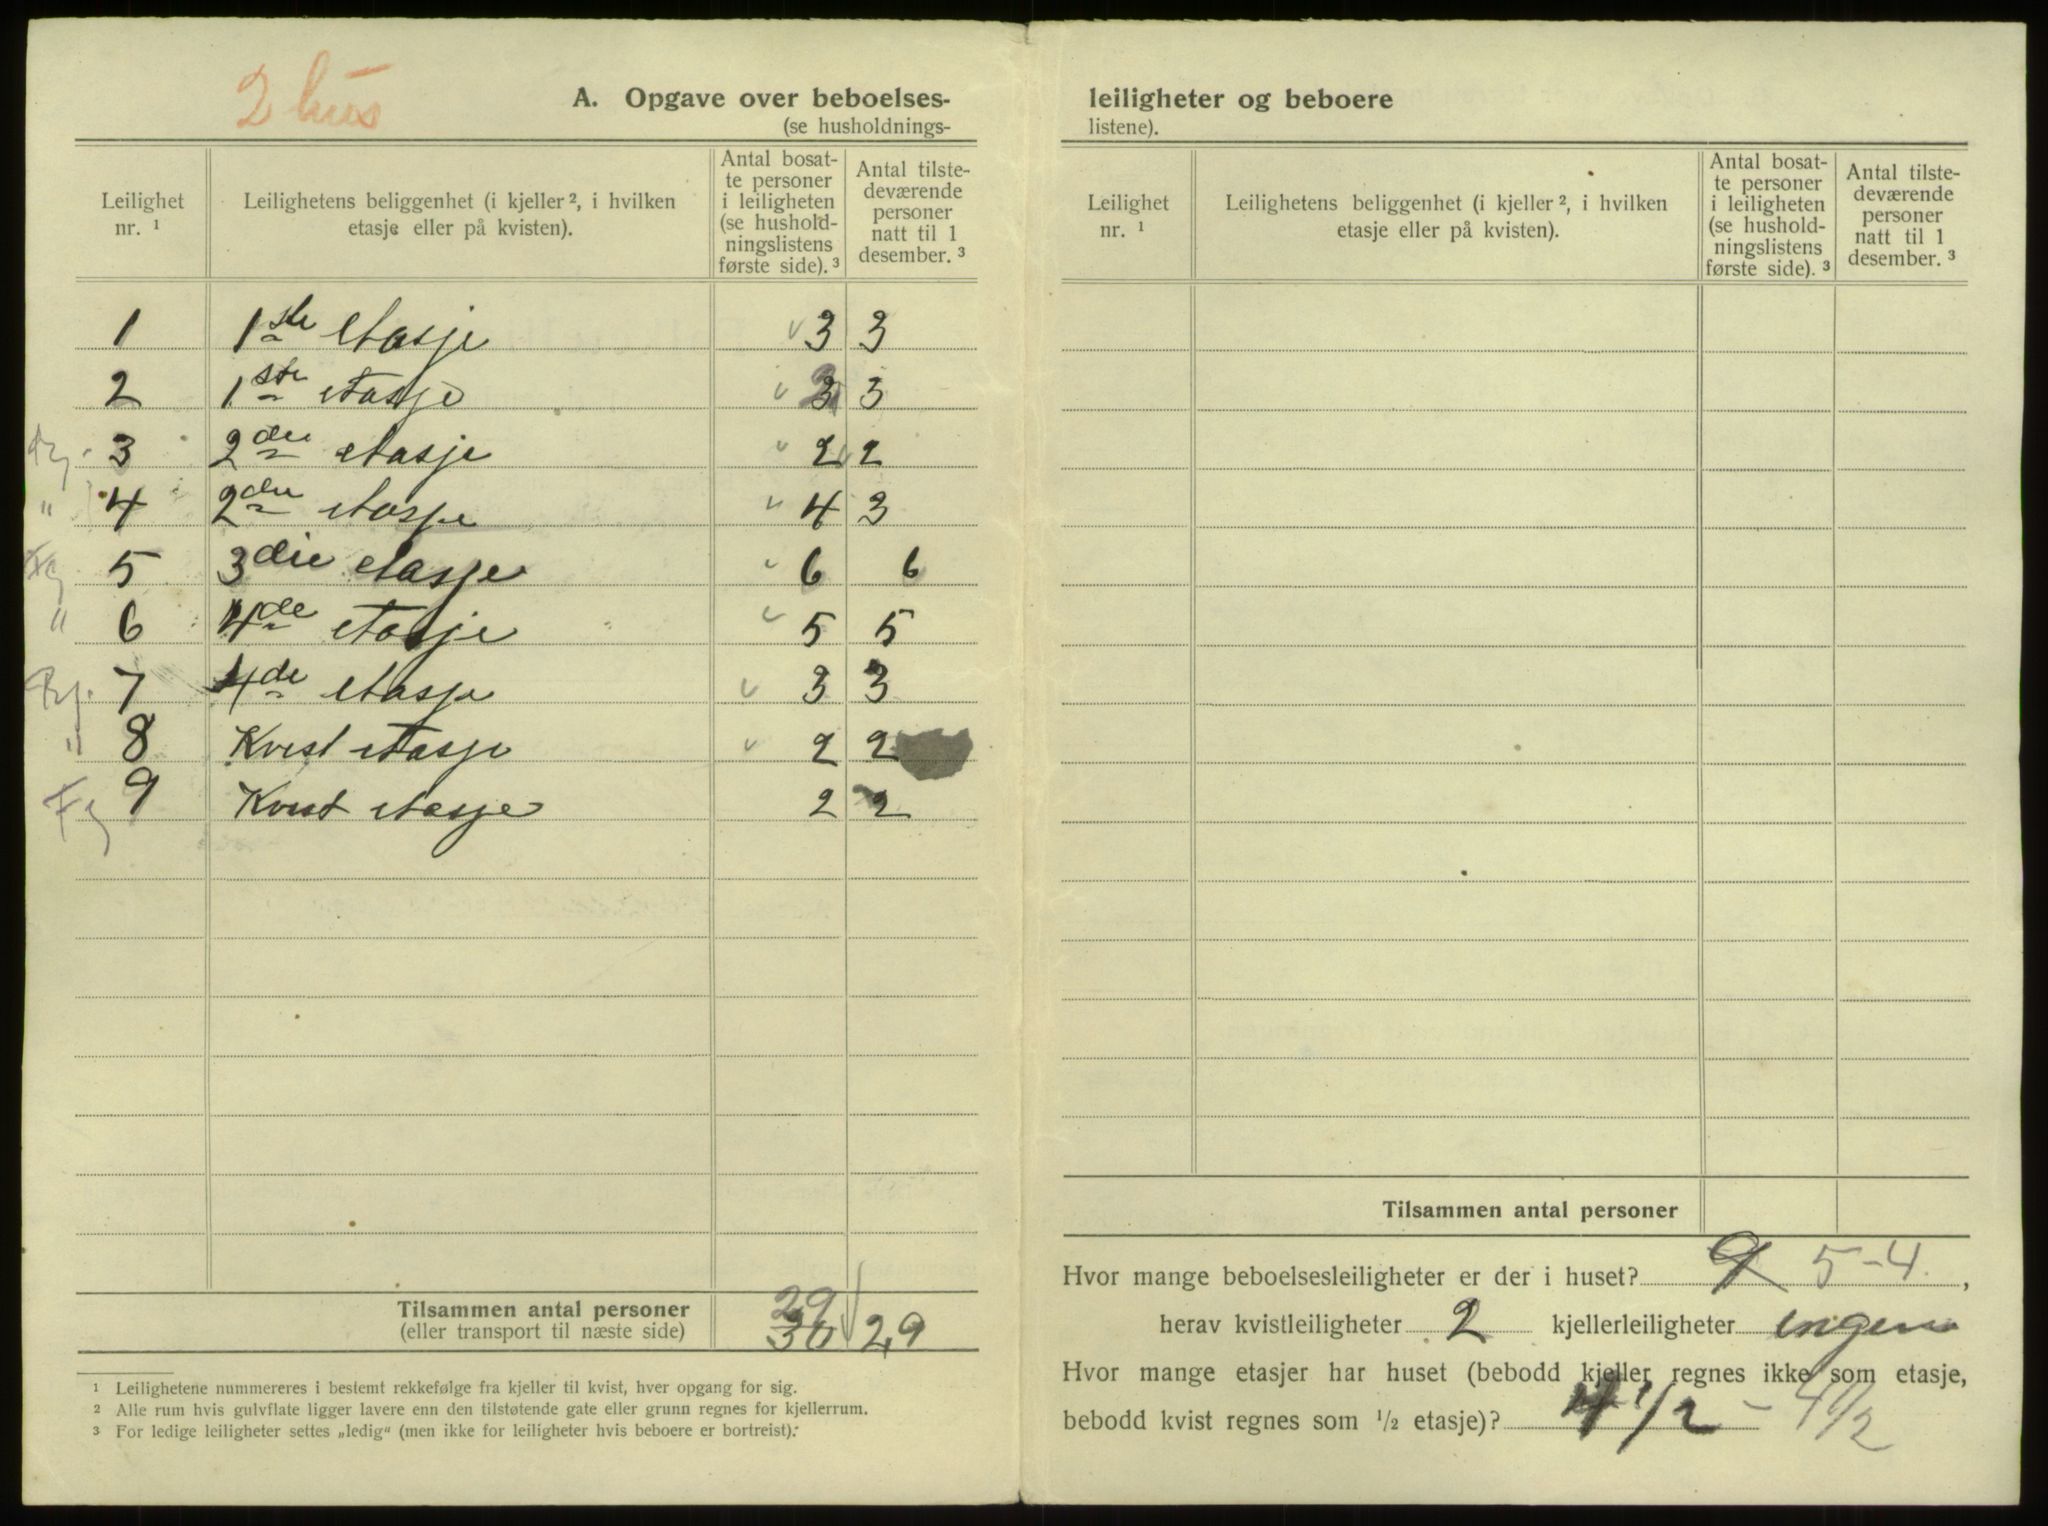 2 hus
A. Opgave over beboelses-
(se husholdnings-
Leilighet nr. ¹
Leilighetens beliggenhet (i kjeller ², i hvilken etasje eller på kvisten).
Antal bosatte personer i leiligheten (se husholdningslistens første side). ³
Antal tilstedeværende personer natt til 1 desember. ³
1 1ste etasje 3 3
2 1ste etasje 3 3
3 2den etasje 2 2
" 4 2den etasje 4 3
Fg 5 3die etasje 6 6
" 6 4de etasje 5 5
7 4de etasje 3 3
" 8 Kvist etasje 2 2
Fg 9 Kvist etasje 2 2
29
Tilsammen antal personer 30 29
(eller transport til næste side)
¹ Leilighetene nummereres i bestemt rekkefølge fra kjeller til kvist, hver opgang for sig.
² Alle rum hvis gulvflate ligger lavere enn den tilstøtende gate eller grunn regnes for kjellerrum.
³ For ledige leiligheter settes „ledig" (men ikke for leiligheter hvis beboere er bortreist).
leiligheter og beboere
listene).
Leilighet nr. ¹
Leilighetens beliggenhet (i kjeller ², i hvilken etasje eller på kvisten).
Antal bosatte personer i leiligheten (se husholdningslistens første side). ³
Antal tilstedeværende personer natt til 1 desember. ³
Tilsammen antal personer
Hvor mange beboelsesleiligheter er der i huset? 9 5-4,
herav kvistleiligheter 2 kjellerleiligheter ingen
Hvor mange etasjer har huset (bebodd kjeller regnes ikke som etasje,
bebodd kvist regnes som ½ etasje)? 4 1/2 - 4 1/2